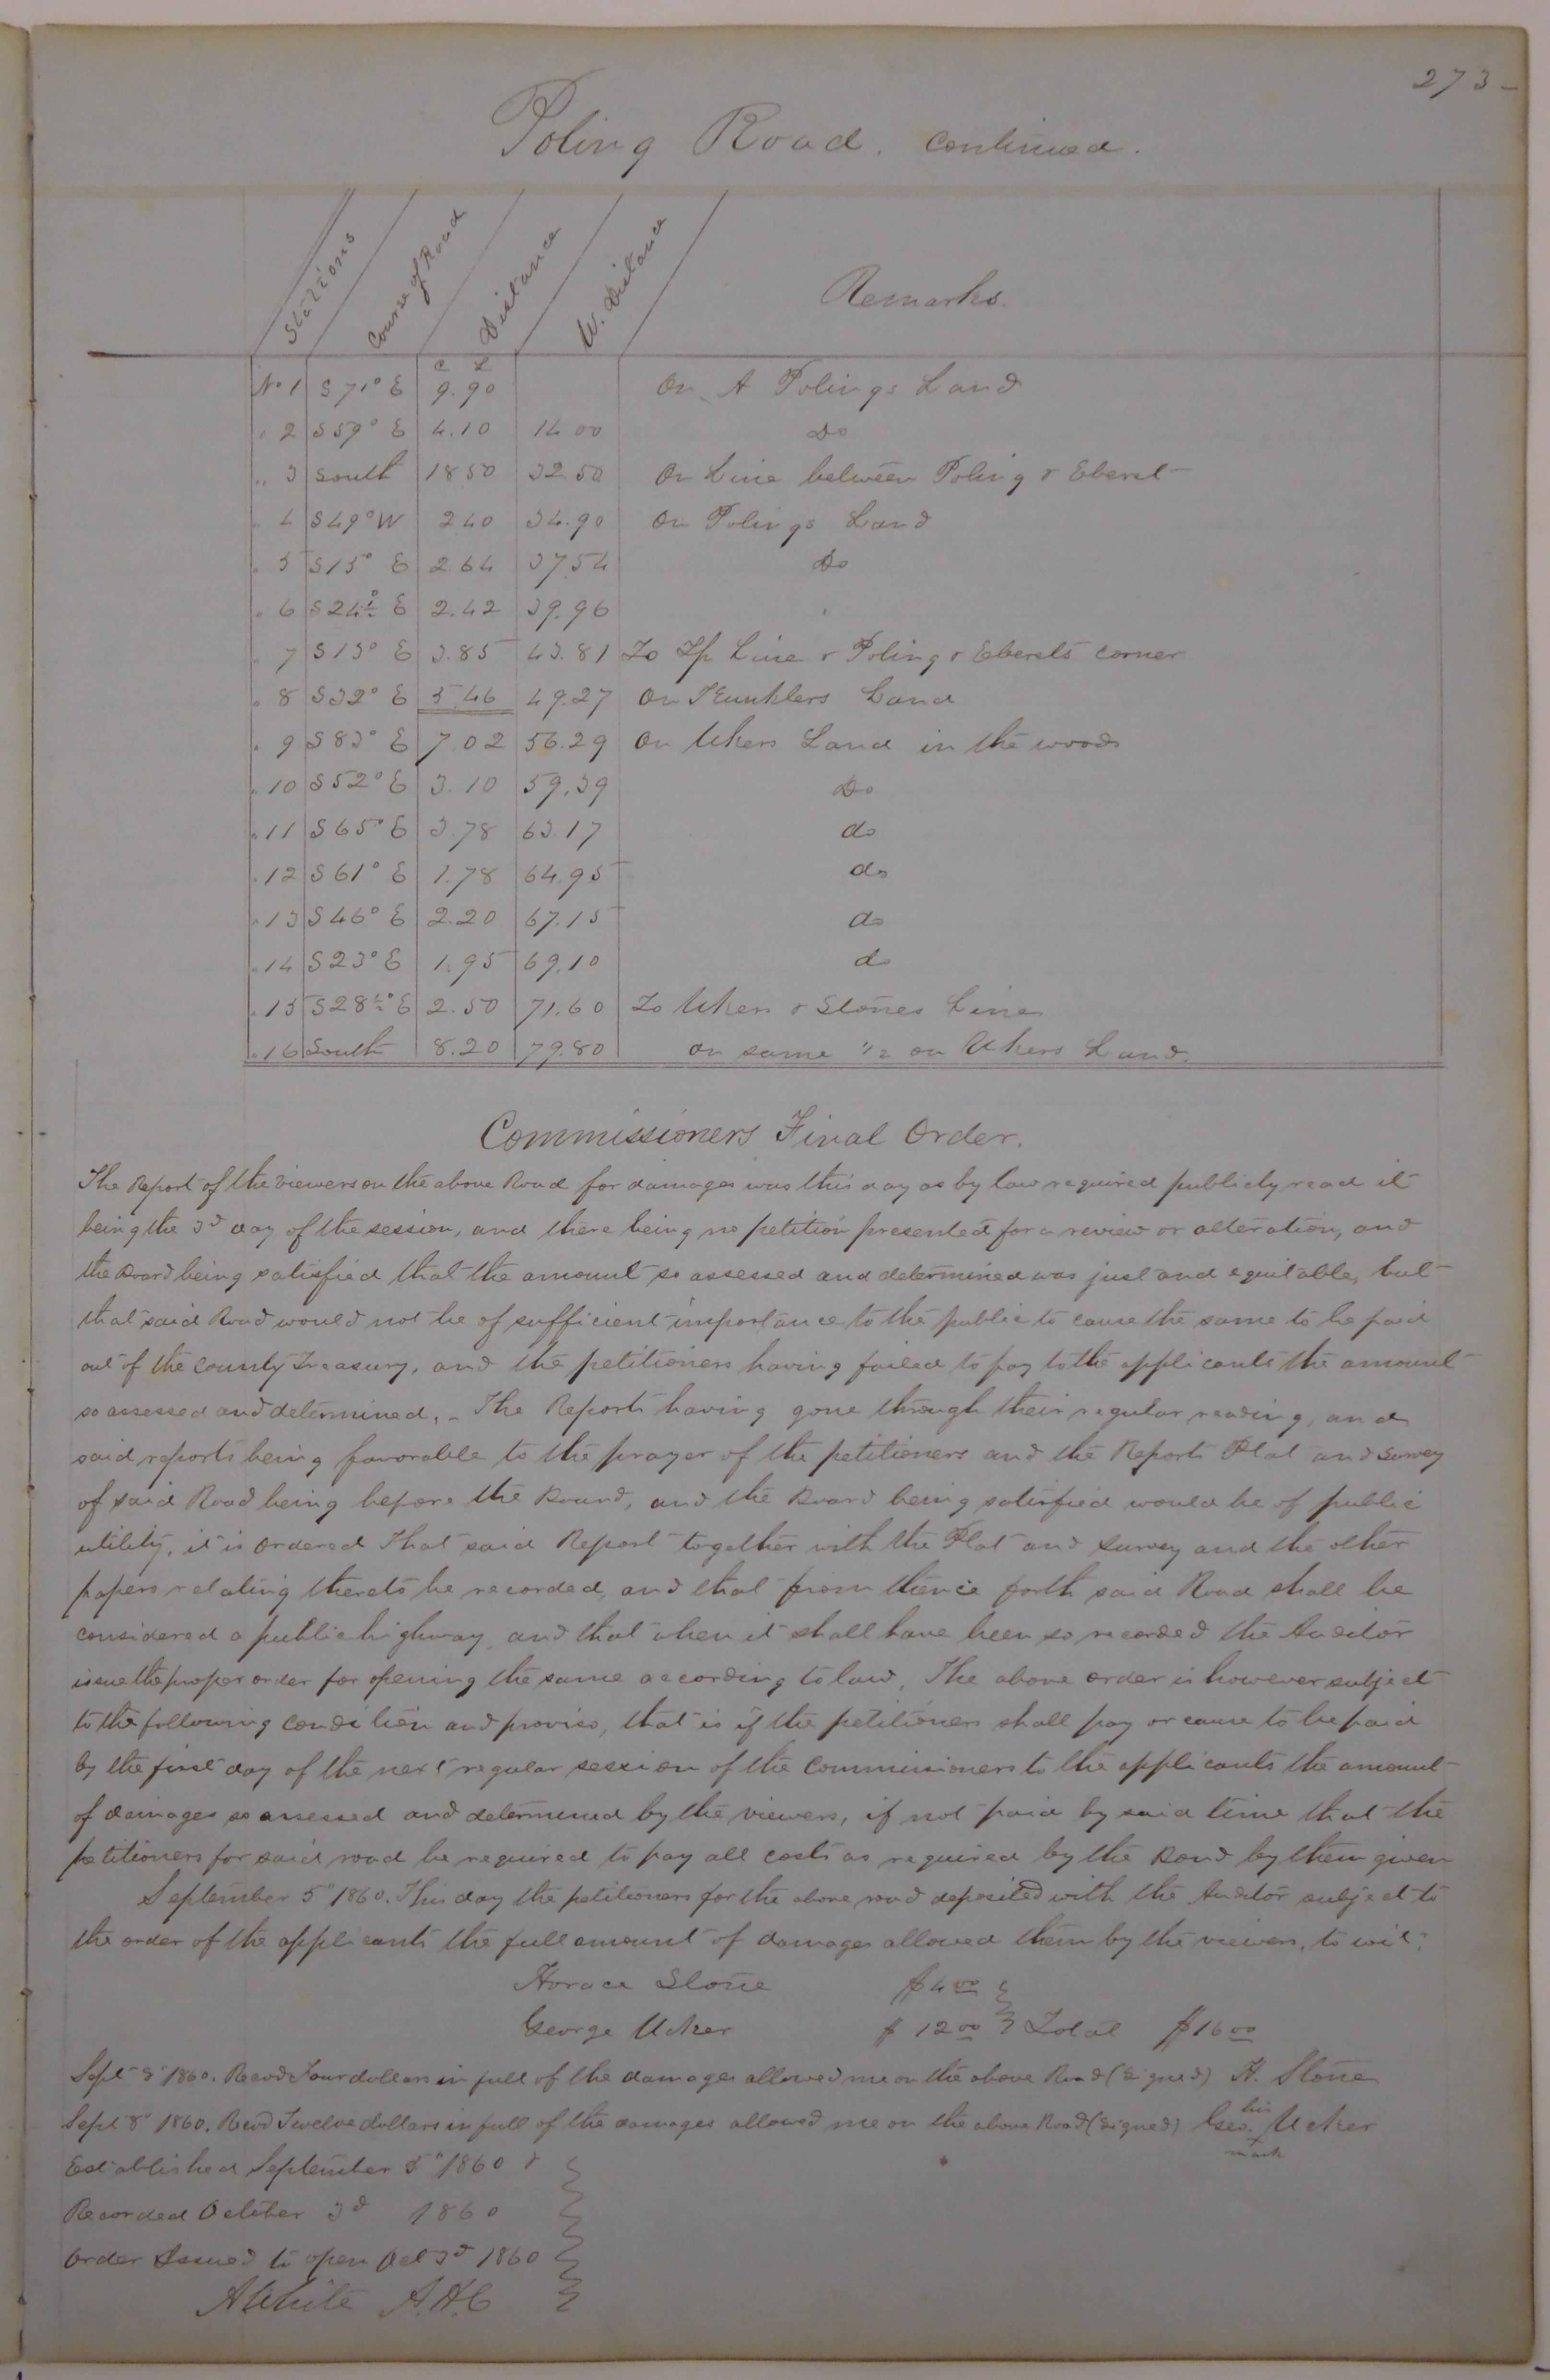 273-
Poling Road. Continued.
Stations Course of Road Distance W. Distance Remarks.
C L
No 1 S 71° E 9.90 On A Polings Land
" 2 S 59° E 4.10 14 00 Do
" 3 South 18.50 32 50 On Line between Poling & Eberst
" 4 S 49° W 2 40 34.90 On Polings Land
" 5 S 15° E 2 64 37.54 Do
" 6 S 24 1/2° E 2.42 39.96 "
" 7 S 13° E 3.85 43.81 To Tp Line & Poling & Ebersts corner
" 8 S 32° E 5.46 49.27 On Land
" 9 S 83° E 7.02 56.29 On Ukers Land in the woods
" 10 S 52° E 3.10 59.39 Do
" 11 S 65° E 3.78 63.17 do
" 12 S 61° E 1.78 64.95 do
" 13 S 46° E 2.20 67.15 do
" 14 S 23° E 1.95 69.10 do
" 15 S 28 1/2° E 2.50 71.60 To Ukers & Stones Line
" 16 South 8.20 79.80 on same 1/2 on Ukers Land.
Commissioners Final Order.
The Report of the viewers on the above Road for damages was this day as by law required publicly read it
being the 3d day of the session, and there being no petition presented for a review or alteration, and
the Board being satisfied that the amount so assessed and determined was just and equitable, but
that said Road would not be of sufficient importance to the public to cause the same to be paid
out of the County Treasury, and the petitioners having failed to pay to the applicants the amount
so assessed and determined, - The Reports having gone through their regular reading, and
said reports being favorable to the prayer of the petitioners and the Reports Plat and Survey
of said Road being before the Board, and the Board being satisfied would be of public
utility, it is ordered That said Report together with the Plat and Survey and the other
papers relating thereto be recorded, and that from thence forth said Road shall be
considered a public highway, and that when it shall have been so recorded the Auditor
issue the proper order for opening the same according to law, The above order is however subject
to the following condition and proviso, that is if the petitioners shall pay or cause to be paid
by the first day of the next regular session of the Commissioners to the applicants the amount
of damages so assessed and determined by the viewers, if not paid by said time that the
petitioners for said road be required to pay all costs as required by the Bond by them given
September 5" 1860. This day the petitioners for the above road deposited with the Auditor subject to
the order of the applicants the full amount of damages allowed them by the viewers, to wit:
Horace Stone $4 00
George Ucker $ 12 00 } Total $16 00
Sept 8" 1860. Recvd Four dollars in full of the damages allowed me on the above Road (Signed) H. Stone
Sept 8" 1860. Recvd Twelve dollars in full of the damages allowed me on the above Road (Signed) Geo. his X mark Ucker
Established September 5" 1860 &
Recorded October 3d 1860
Order Issued to open Oct 3d 1860
A White A.H.C